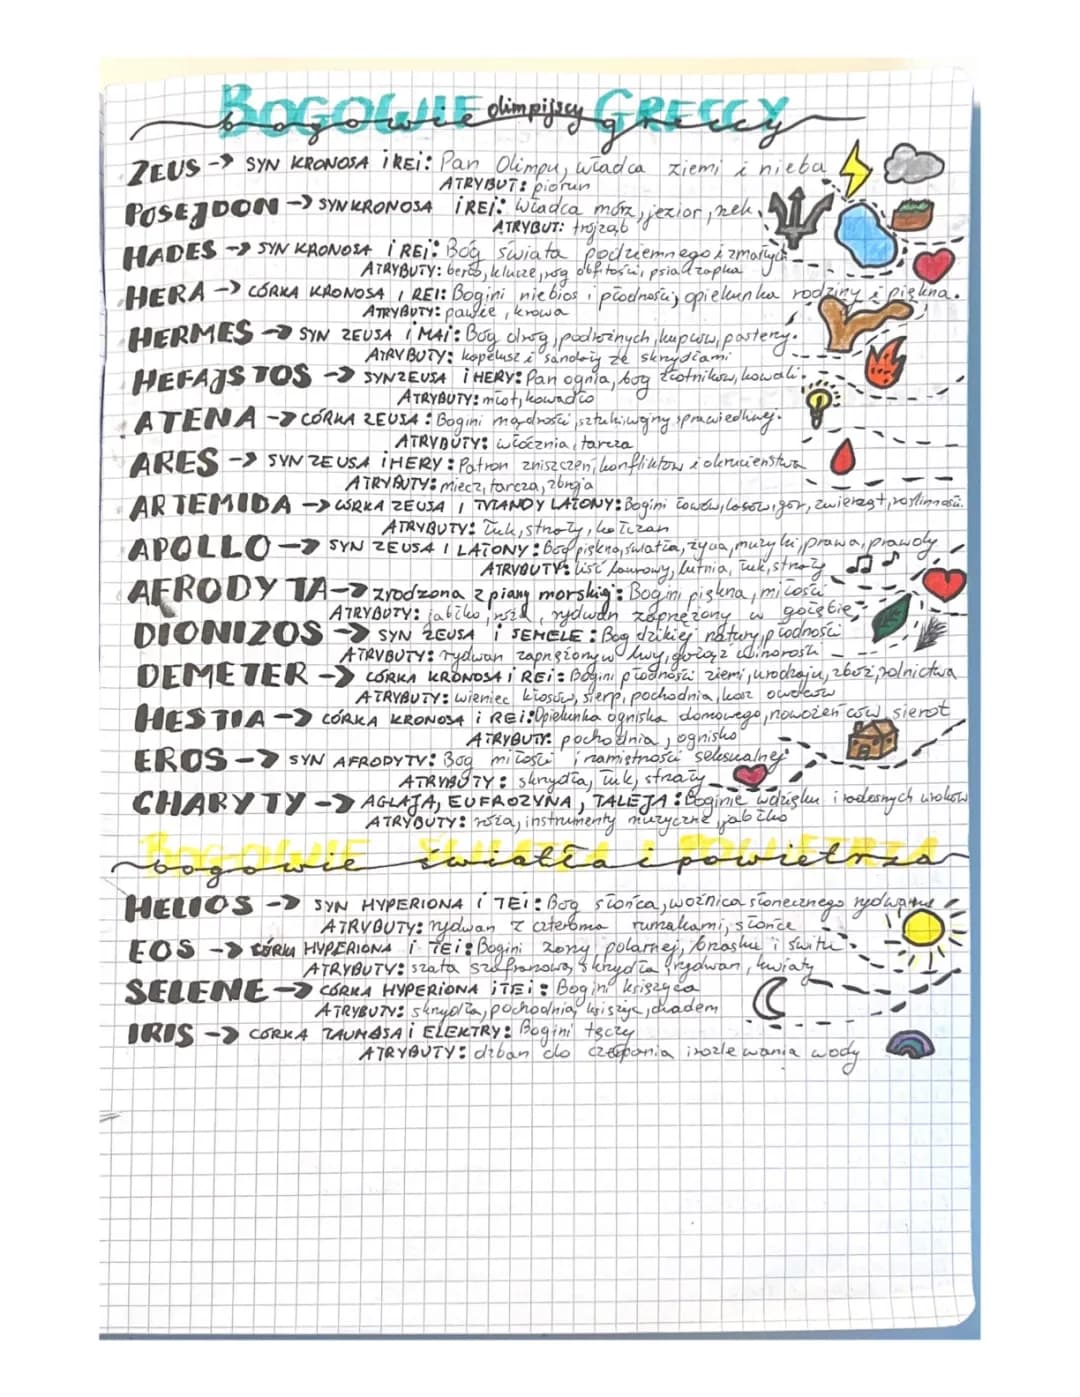 BOGOWIE olimpijscy GRECCY
bogowie greccy
ZEUS -> SYN KRONOSA i REi: Pan Olimpu, władca ziemi i nieba
ATRYBUT: piorun
POSEJDON -> SYN KRONOSA i REI: władca mórz, jezior, rzek
ATRYBUT: trójząb
HADES -> SYN KRONOSA i REi: Bóg świata podziemnego i zmarłych
ATRYBUTY: berło, klucze, róg obfitości, psia czapka
HERA -> CÓRKA KRONOSA I REI: Bogini niebios i płodności, opiekunka rodziny i piękna.
ATRYBUTY: pawie, krowa
HERMES -> SYN ZEUSA i MAi: Bóg dróg, podróżnych, kupców, pasterzy.
ATRYBUTY: kapelusz i sandały ze skrzydłami
HEFAJSTOS -> SYN ZEUSA i HERY: Pan ognia, bóg złotników, kowali.
ATRYBUTY: młot, kowadło
ATENA -> CÓRKA ZEUSA: Bogini mądrości, sztuki, wojny sprawiedliwej.
ATRYBUTY: włócznia, tarcza
ARES -> SYN ZEUSA i HERY: Patron zniszczeń, konfliktów i okrucieństwa
ATRYBUTY: miecz, tarcza, zbroja
ARTEMIDA -> CÓRKA ZEUSA I LATONY: Bogini łowów, lasów, gór, zwierząt, roślinności.
ATRYBUTY: łuk, strzały, kołczan
APOLLO -> SYN ZEUSA I LATONY: Bóg piękna, światła, życia, muzyki, prawa, prawdy
ATRYBUTY: liść laurowy, lutnia, łuk, strzały
AFRODYTA -> zrodzona z piany morskiej: Bogini piękna, miłości
ATRYBUTY: jabłko, róża, rydwan zaprzężony w gołębie
DIONIZOS -> SYN ZEUSA i SEMELE: Bóg dzikiej natury, płodności
ATRYBUTY: rydwan zaprzężony w lwy, gałąź winorośli
DEMETER -> CÓRKA KRONOSA i REi: Bogini płodności ziemi, urodzaju, zbóż, rolnictwa
ATRYBUTY: wieniec kłosów, sierp, pochodnia, kosz owoców
HESTIA -> CÓRKA KRONOSA i REi: Opiekunka ogniska domowego, nowożeńców, sierot
ATRYBUTY: pochodnia, ognisko
EROS -> SYN AFRODYTY: Bóg miłości i namiętności seksualnej
ATRYBUTY: skrzydła, łuk, strzały
CHARYTY -> AGLAJA, EUFROZYNA, TALEJA: Boginie wdzięku i radosnych uroków
ATRYBUTY: róża, instrumenty muzyczne, jabłko
BOGOWIE ŚWIATŁA I POWIETRZA
bogowie światła i powietrza
HELIOS -> SYN HYPERIONA i TEi: Bóg słońca, woźnica słonecznego rydwanu
ATRYBUTY: rydwan z czterema rumakami, słońce
EOS -> CÓRKA HYPERIONA i TEi: Bogini zorzy polarnej, brzasku i świtu
ATRYBUTY: szata szafranowa, skrzydła, rydwan, kwiaty
SELENE -> CÓRKA HYPERIONA i TEi: Bogini księżyca
ATRYBUTY: skrzydła, pochodnia, księżyc, diadem
IRIS -> CÓRKA TAUMASA i ELEKTRY: Bogini tęczy
ATRYBUTY: dzban do czerpania i rozlewania wody